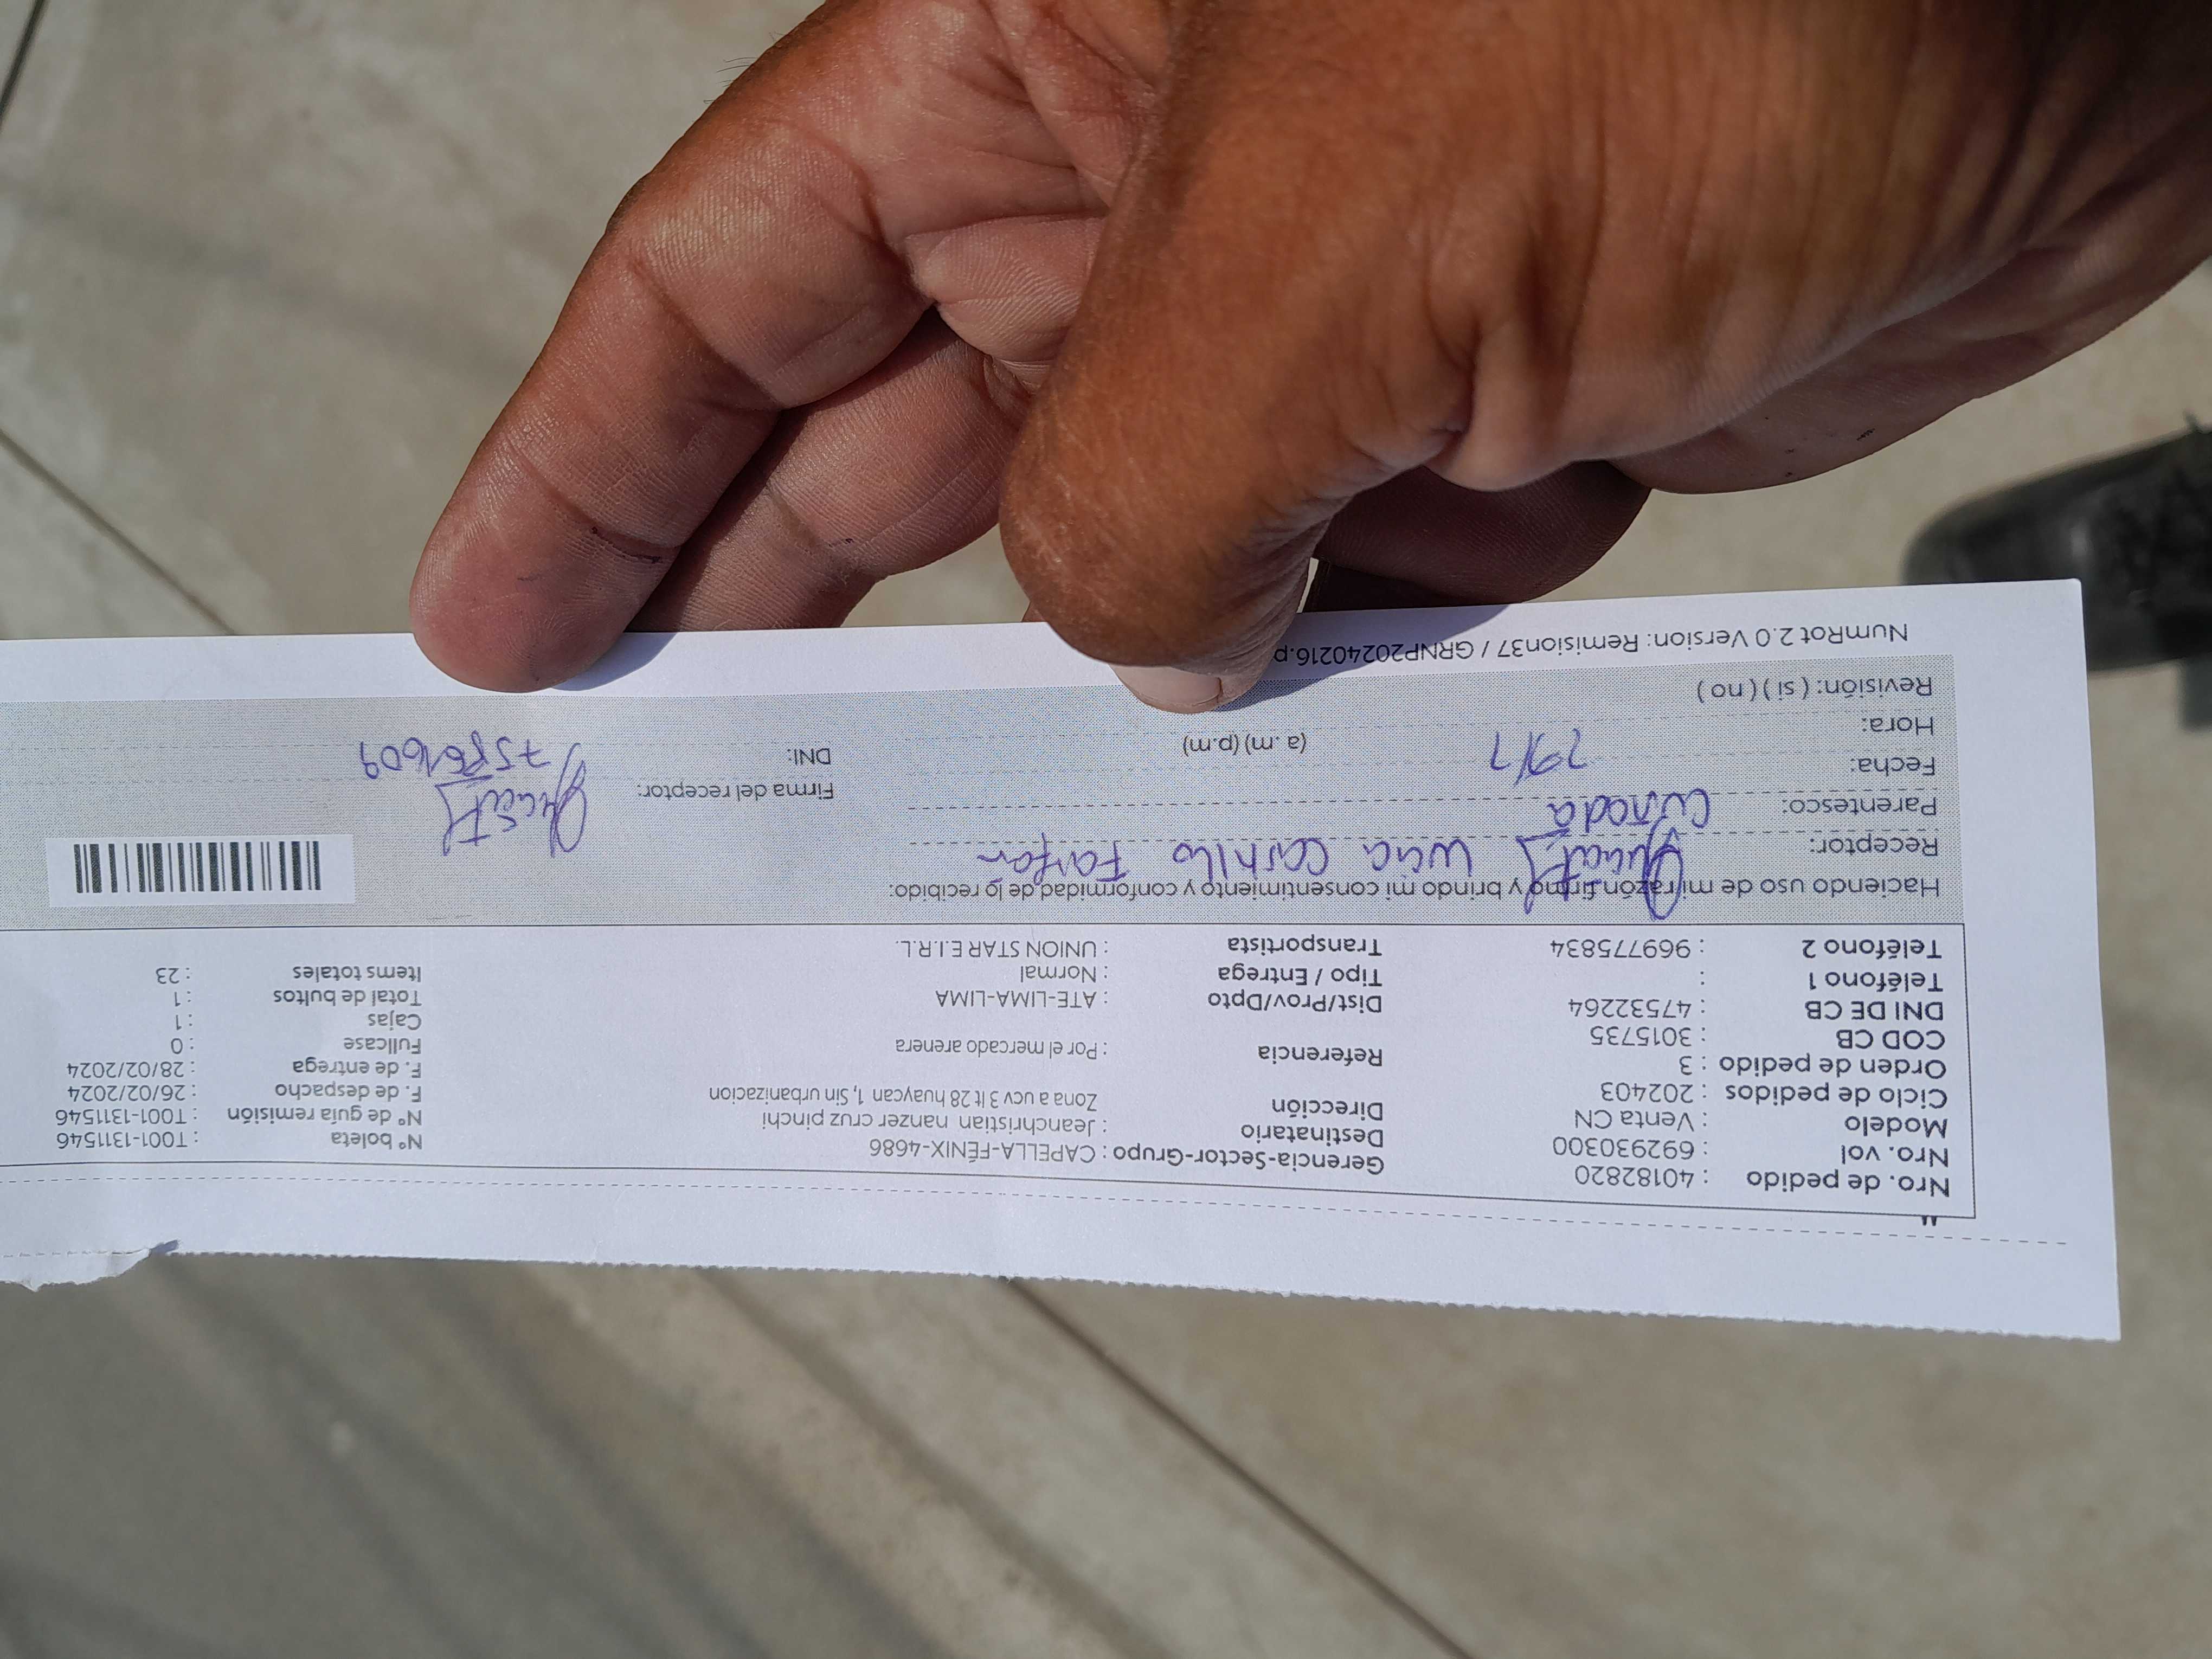 Nro. de pedido : 40182820
Nro. vol : 692930300
Modelo : Venta CN
Ciclo de pedidos : 202403
Orden de pedido : 3
COD CB : 3015735
DNI DE CB : 47532264
Teléfono 1 :
Teléfono 2 : 969775834
Gerencia-Sector-Grupo : CAPELLA-FÉNIX-4686
Destinatario : Jeanchristian nanzer cruz pinchi
Dirección Zona a ucv 3 lt 28 huaycan 1, Sin urbanizacion
Referencia : Por el mercado arenera
Dist/Prov/Dpto : ATE-LIMA-LIMA
Tipo / Entrega : Normal
Transportista : UNION STAR E.I.R.L.
Nº boleta : T001-1311546
Nº de guía remisión : T001-1311546
F. de despacho : 26/02/2024
F. de entrega : 28/02/2024
Fullcase : 0
Cajas : 1
Total de bultos : 1
Items totales : 23
Haciendo uso de mi razón firmo y brindo mi consentimiento y conformidad de lo recibido:
Receptor: Lucia Castillo Farfan
Parentesco: Cuñada
Fecha:
Hora: (a.m) (p.m)
Revisión: ( si ) ( no )
Firma del receptor:
DNI:
NumRot 2.0 Version: Remision37 / GRNP20240216.p